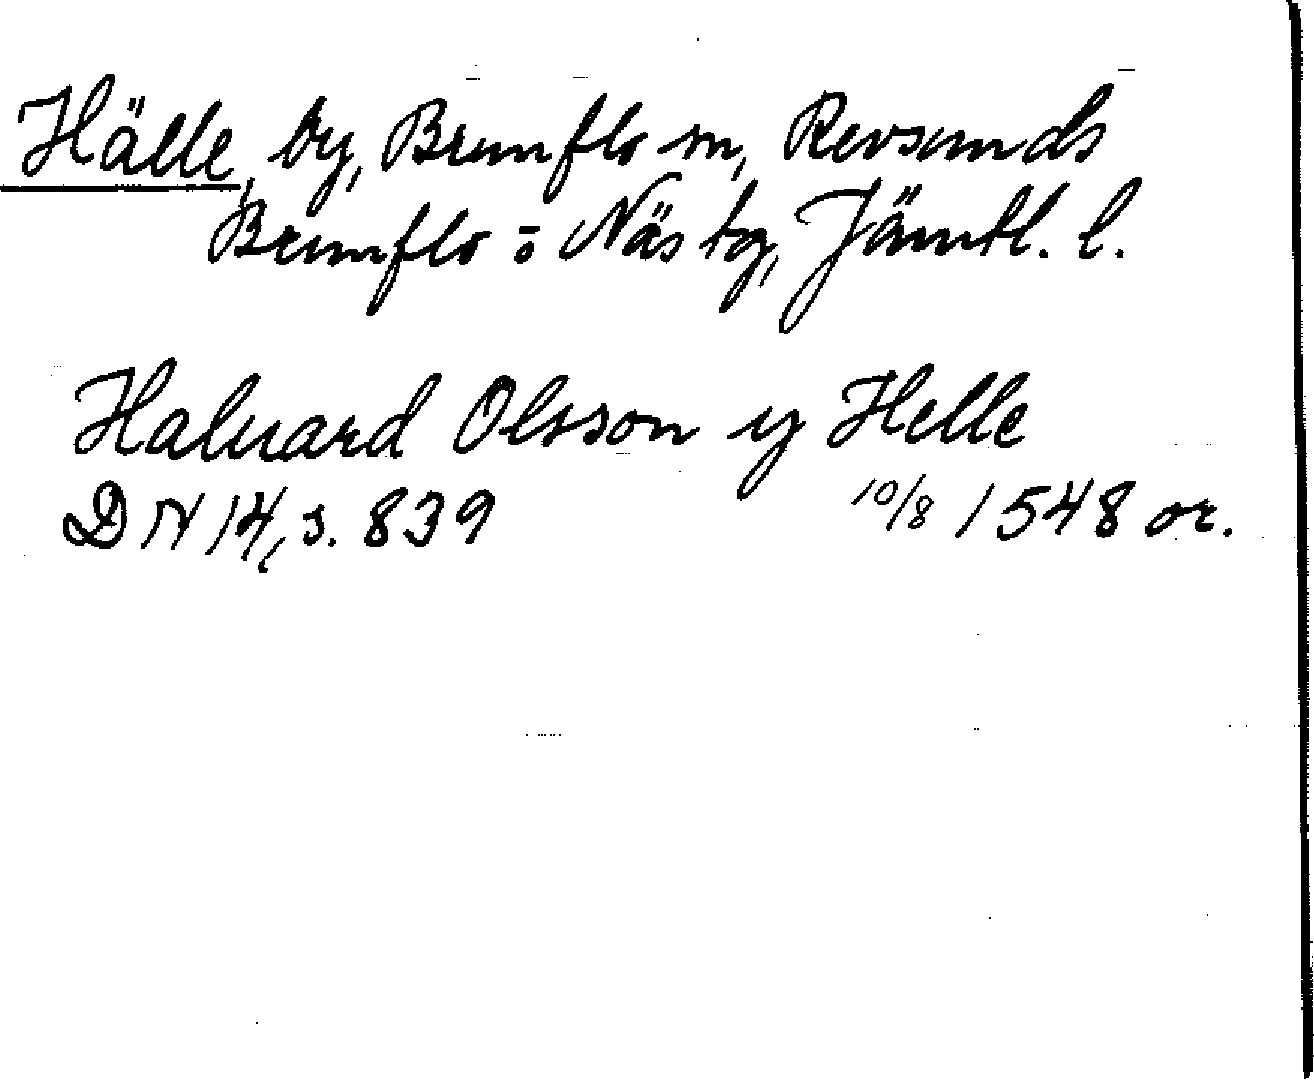 Hälle, by, Brunflo sn, Revsunds
Brunflo o Näs tg, Jämtl. l.
Haluard Olsson y Helle
DN 14, s. 839 10/8 1548 or.